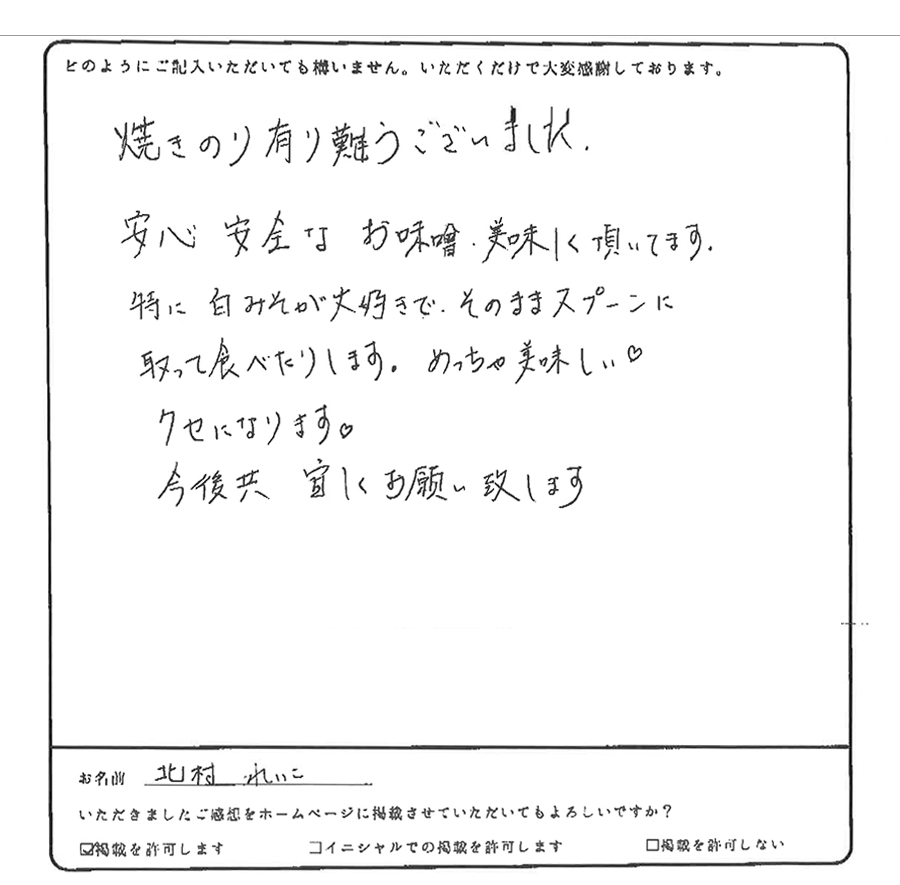 どのようにご記入いただいても構いません。いただくだけで大変感謝しております。
焼きのり有り難うございました.
安心 安全な お味噌.美味しく頂いてます.
特に 白みそが大好きで.そのままスプーンに
取って食べたりします。めっちゃ美味しい♡
クセになります♡
今後共 宜しくお願い致します
お名前 北村 れいこ
いただきましたご感想をホームページに掲載させていただいてもよろしいですか？
☑掲載を許可します □イニシャルでの掲載を許可します □掲載を許可しない